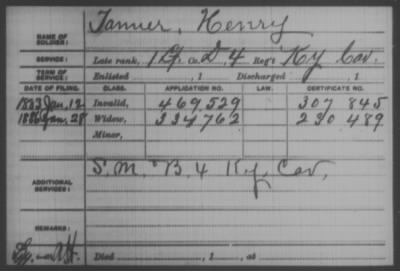 NAME OF SOLDIER: Tanner, Henry
SERVICE: Late rank, Co. D, 4 Reg't Ky Cav.
TERM OF SERVICE: Enlisted , 1 Discharged , 1
DATE OF FILING. CLASS. APPLICATION NO. LAW. CERTIFICATE NO.
1883 Jan. 12 Invalid, 469,529 307 845
Jan. 28 Widow, 334762 230 489
Minor,
ADDITIONAL SERVICES: S. M. B. 4 Ky. Cav.
REMARKS:
Died , 1 , at